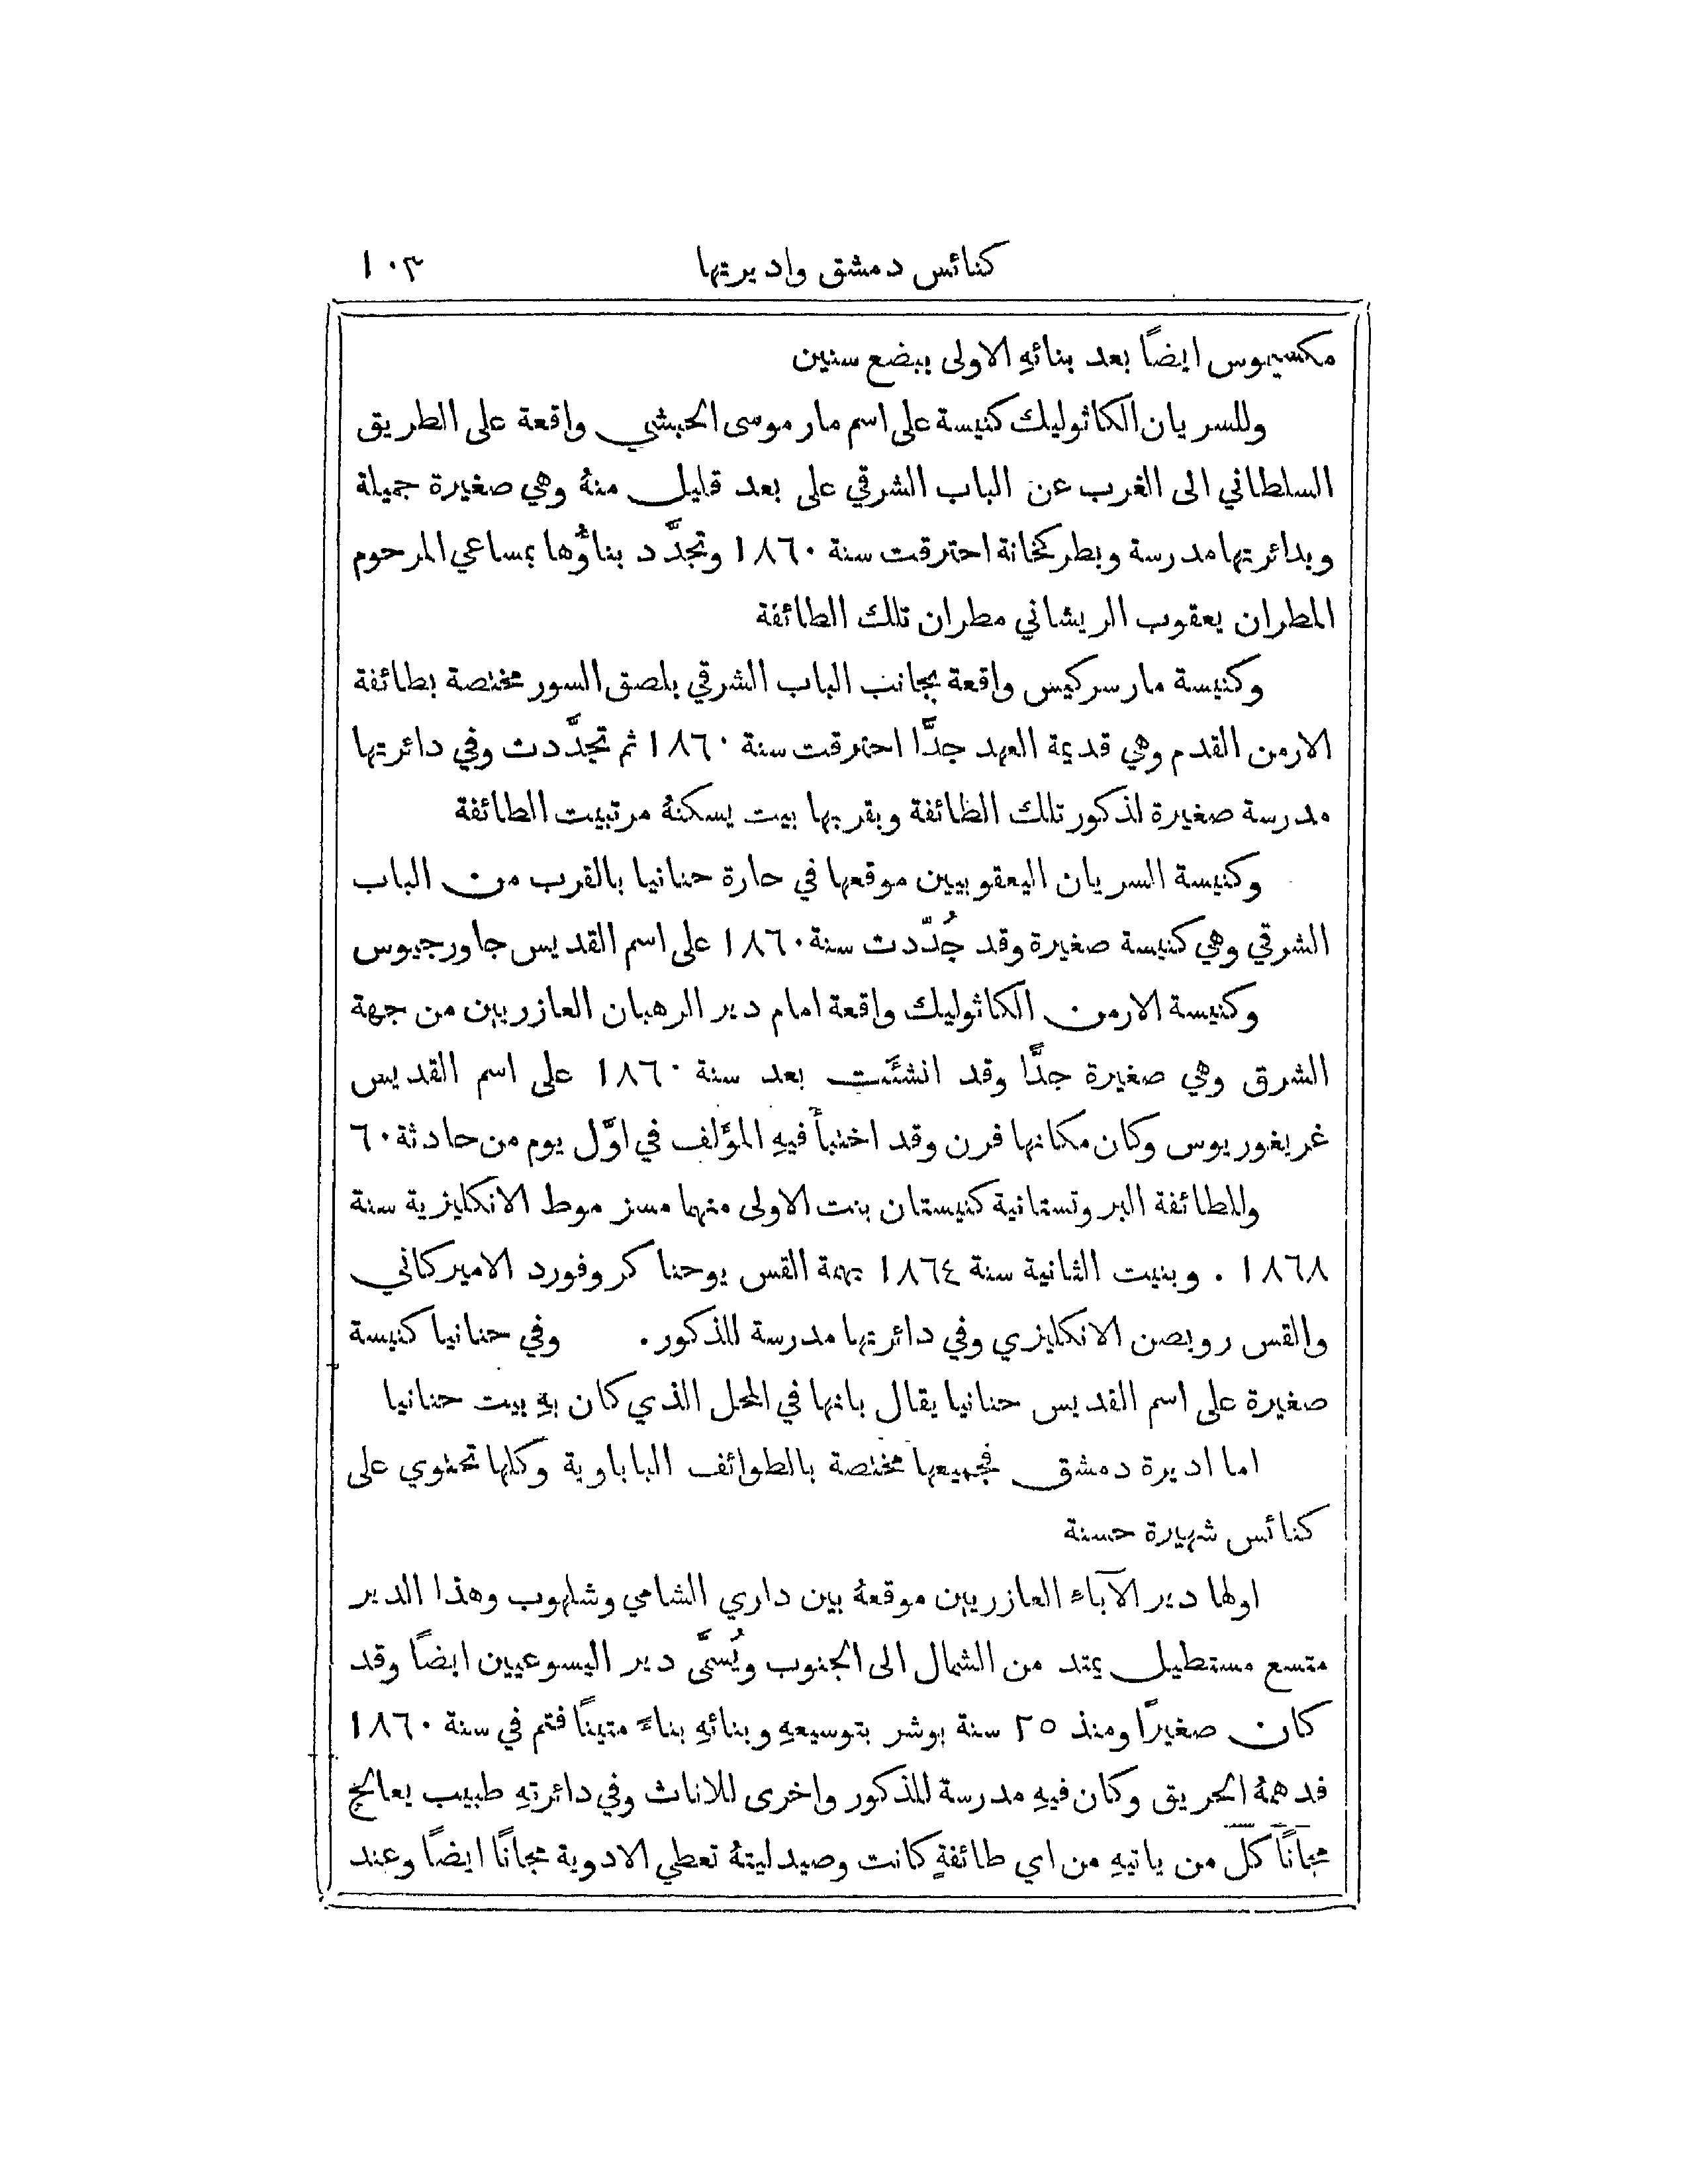 كنائس دمشق واديرتها ١٠٣
مكسيموس ايضاً بعد بنائهِ الاولى ببضع سنين
وللسريان الكاثوليك كنيسة على اسم مار موسى الحبشي واقعة على الطريق
السلطاني الى الغرب عن الباب الشرقي على بعد قليل منهُ وهي صغيرة جميلة
وبدائرتها مدرسة وبطركخانة احترقت سنة ١٨٦٠ وتجدَّد بناؤُها بمساعي المرحوم
المطران يعقوب الريشاني مطران تلك الطائفة
وكنيسة مار سركيس واقعة بجانب الباب الشرقي بلصق السور مختصة بطائفة
الارمن القدم وهي قديمة العهد جدًّا احترقت سنة ١٨٦٠ ثم تجدَّدت وفي دائرتها
مدرسة صغيرة لذكور تلك الطائفة وبقربها بيت يسكنهُ مرتبيت الطائفة
وكنيسة السريان اليعقوبيين موقعها في حارة حنانيا بالقرب من الباب
الشرقي وهي كنيسة صغيرة وقد جُدّدت سنة ١٨٦٠ على اسم القديس جاورجيوس
وكنيسة الارمن الكاثوليك واقعة امام دير الرهبان العازريين من جهة
الشرق وهي صغيرة جدًّا وقد انشئَت بعد سنة ١٨٦٠ على اسم القديس
غريغوريوس وكان مكانها فرن وقد اختبأَ فيهِ المؤَلف في اوَّل يوم من حادثة ٦٠
وللطائفة البروتستانية كنيستان بنت الاولى منهما مسز موط الانكليزية سنة
١٨٦٨ . وبنيت الثانية سنة ١٨٦٤ بهمة القس يوحنا كروفورد الاميركاني
والقس روبصن الانكليزي وفي دائرتها مدرسة للذكور. وفي حنانيا كنيسة
صغيرة على اسم القديس حنانيا يقال بانها في المحل الذي كان بهِ بيت حنانيا
اما اديرة دمشق فجميعها مختصة بالطوائف الباباوية وكلها تحتوي على
كنائس شهيرة حسنة
اولها دير الآباء العازريين موقعهُ بين داري الشامي وشلهوب وهذا الدير
متسع مستطيل يمتد من الشمال الى الجنوب ويُسمَّى دير اليسوعيين ايضاً وقد
كان صغيراً ومنذ ٢٥ سنة بوشر بتوسيعهِ وبنائهِ بناءً متيناً فتم في سنة ١٨٦٠
فدهمهُ الحريق وكان فيهِ مدرسة للذكور واخرى للاناث وفي دائرتهِ طبيب يعالج
مجاناً كلّ من ياتيهِ من اي طائفةٍ كانت وصيدليتهُ تعطي الادوية مجاناً ايضاً وعند